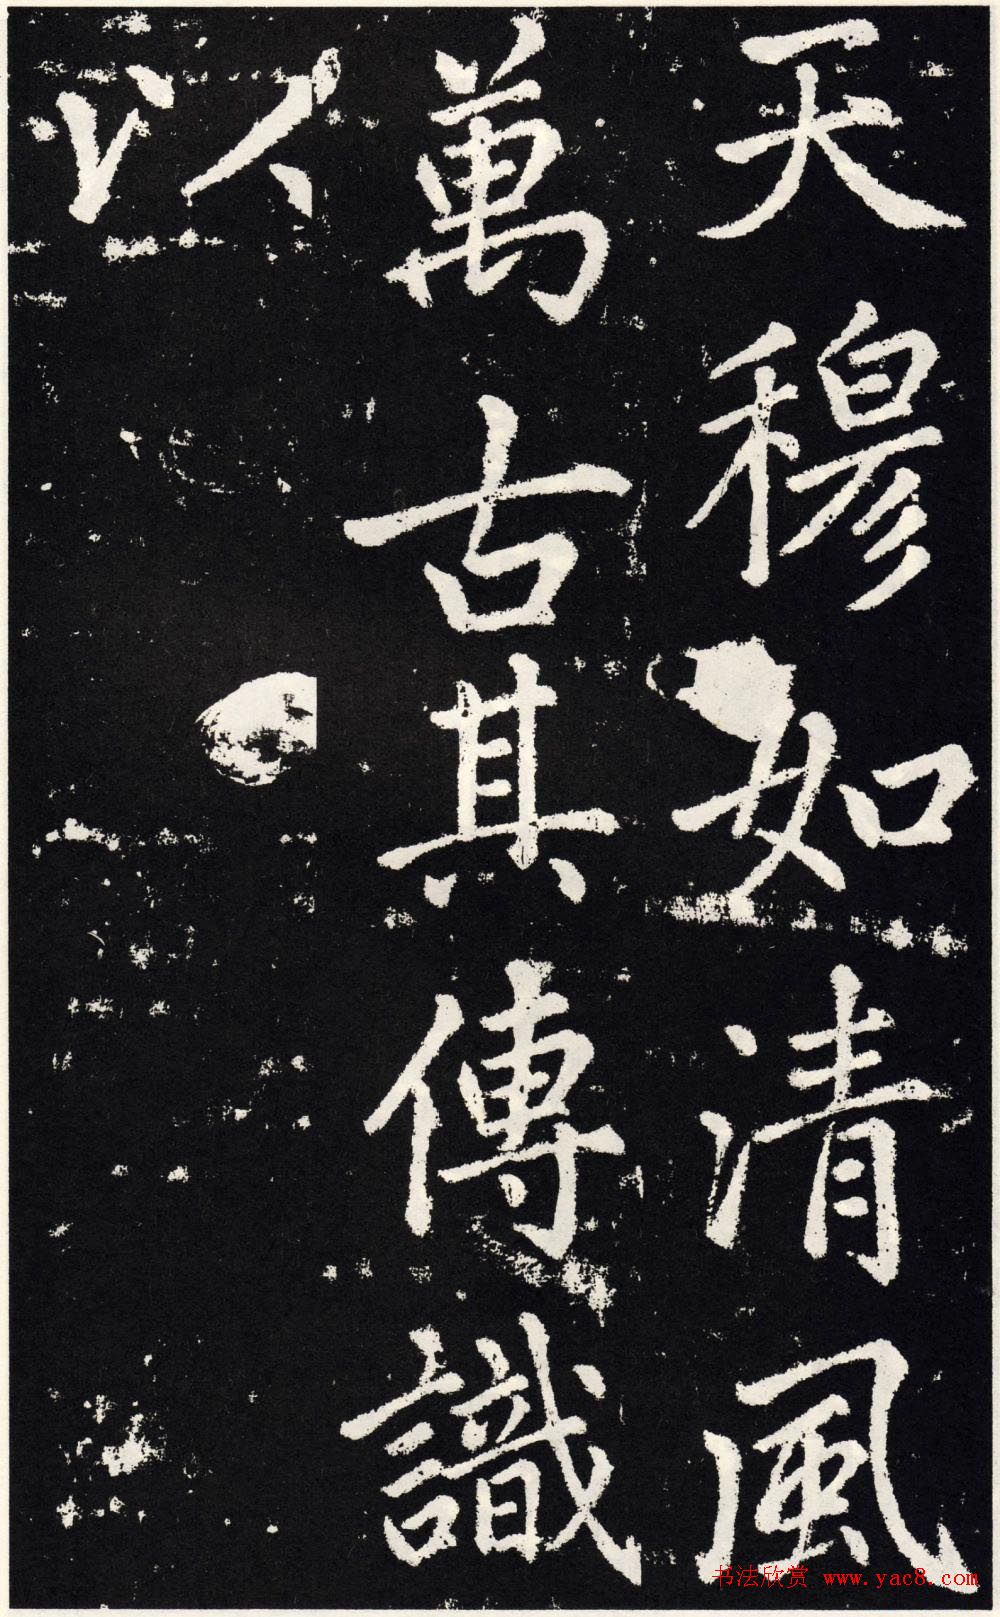 天穆如清風
萬古其傳識
以
书法欣赏 www.yac8.com